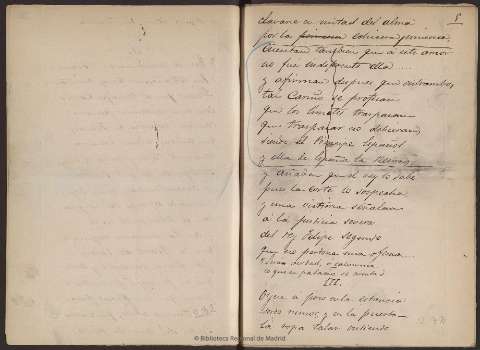 5
clavara en mitad del alma
por la primera
Cuentan tambien que a este amor
no fue indiferente ella....
y afirman despues que entrambos
tal Cariño se profesan
que los limites traspasan
que traspasar no debieran
siendo el Principe Español
y ella de España la Reina;
y añaden que el rey lo sabe
pues la corte lo sospecha
y una victima señalan
a la justicia severa
del rey Felipe Segundo
que no perdona una ofensa...
verdad, o calumnia
lo que en palacio se
III.
que a poco en la estancia
y en la puerta
la ropa talar vistiendo
© Biblioteca Regional de Madrid